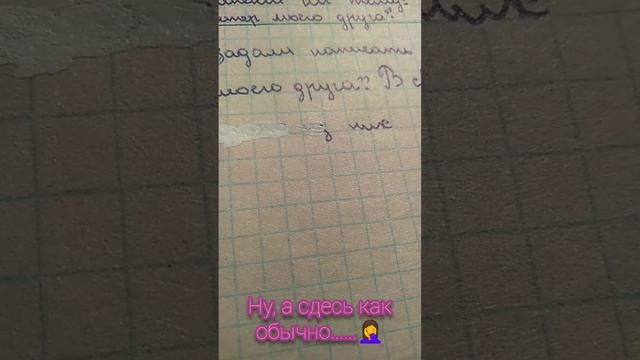 тер моего друга".
задали написать
моего друга". В с
ник
Ну, а сдесь как
обычно......🤦‍♀️